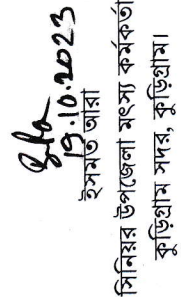 19.10.2023
ইসমত আরা
সিনিয়র উপজেলা মৎস্য কর্মকর্তা
কুড়িগ্রাম সদর, কুড়িগ্রাম।